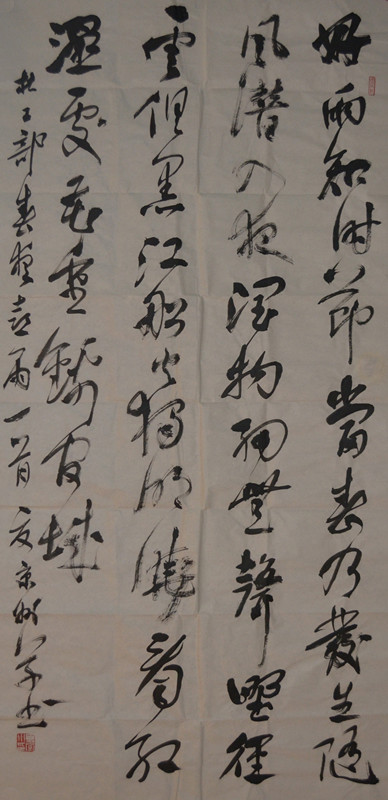 好雨知时節當春乃發生隨
風潜入夜潤物細無聲野徑
雲俱黑江船火獨明曉看紅
濕處花重錦官城
杜工部春夜喜雨一首